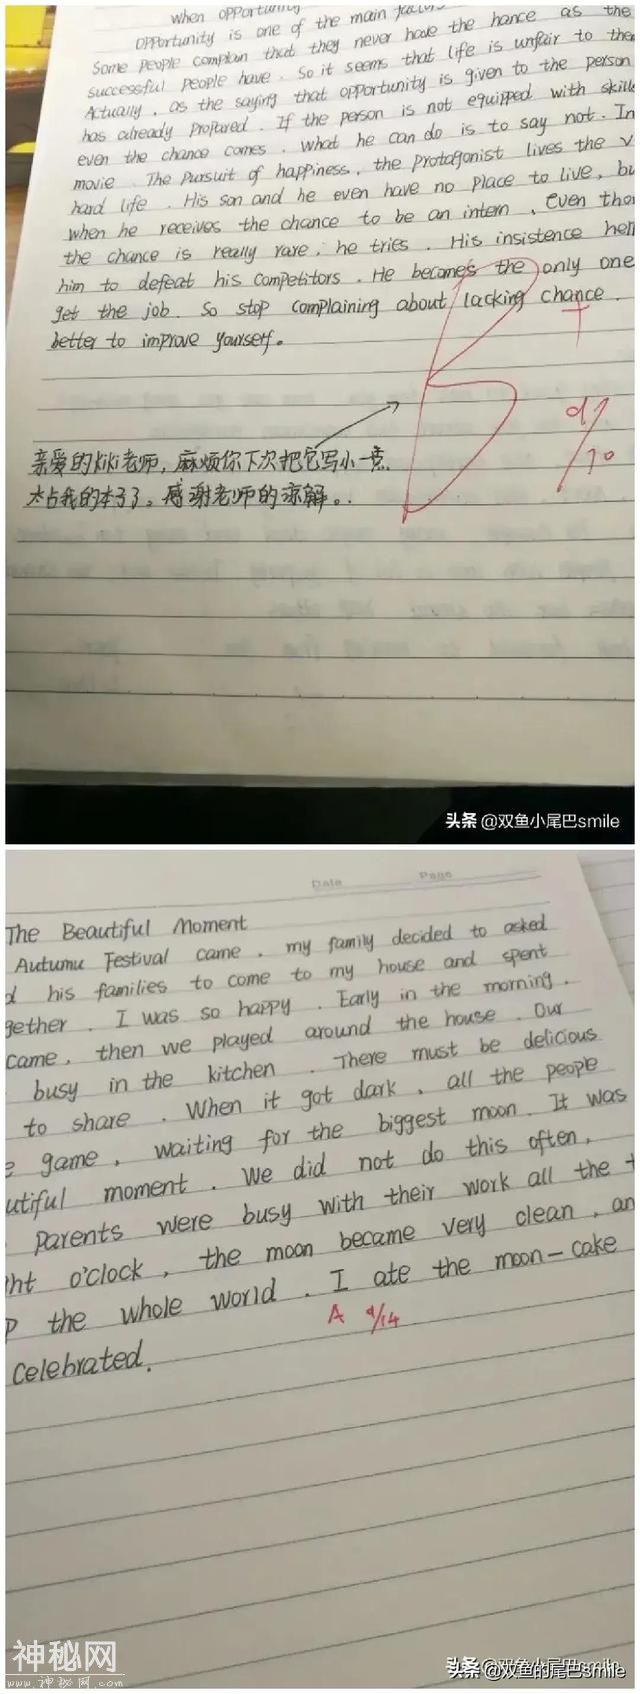 when opportunity
opportunity is one of the main factors
Some people complain that they never have the hance as the
successful people have. So it seems that life is unfair to the
Actually, as the saying that opportunity is given to the person
has already propared. If the person is not equipped with skill
even the chance comes. what he can do is to say not. In
movie The Pursuit of happiness, the protagonist lives the
hard life. His son and he even have no place to live, bu
when he receives the chance to be an intern, Even tho
the chance is really rare, he tries. His insistence hel
him to defeat his competitors. He becomes the only one
get the job. So stop complaining about lacking chance.
better to improve yourself.
B
+
9/10
亲爱的kiki老师，麻烦你下次把它写小一点
太占我的本子了。感谢老师的谅解。
头条 @双鱼小尾巴smile
Date Page
The Beautiful Moment
Autumu Festival came, my family decided to asked
d his families to come to my house and spent
gether. I was so happy. Early in the morning.
came, then we played around the house. Our
busy in the kitchen. There must be delicious
to share. When it got dark, all the people
e game, waiting for the biggest moon. It was
utiful moment. We did not do this often,
Parents were busy with their work all the t
ht o'clock, the moon became very clean, an
p the whole world. I ate the moon-cake
A 9/14
celebrated.
神秘网
www.神秘网.com
头条 @双鱼的尾巴smile